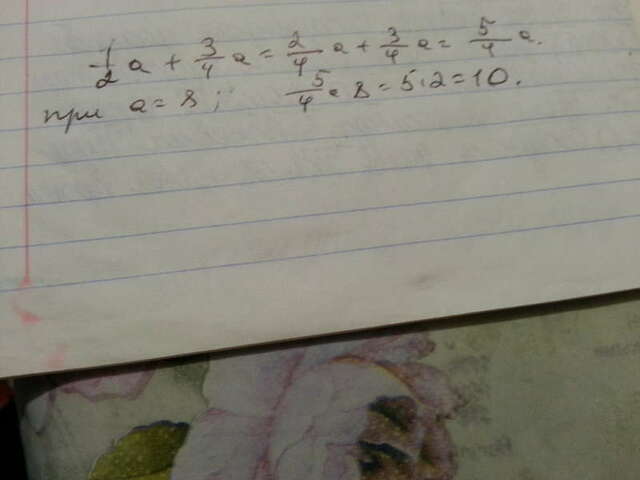 1/2 a + 3/4 a = 2/4 a + 3/4 a = 5/4 a.
при a = 8; 5/4 · 8 = 5·2 = 10.